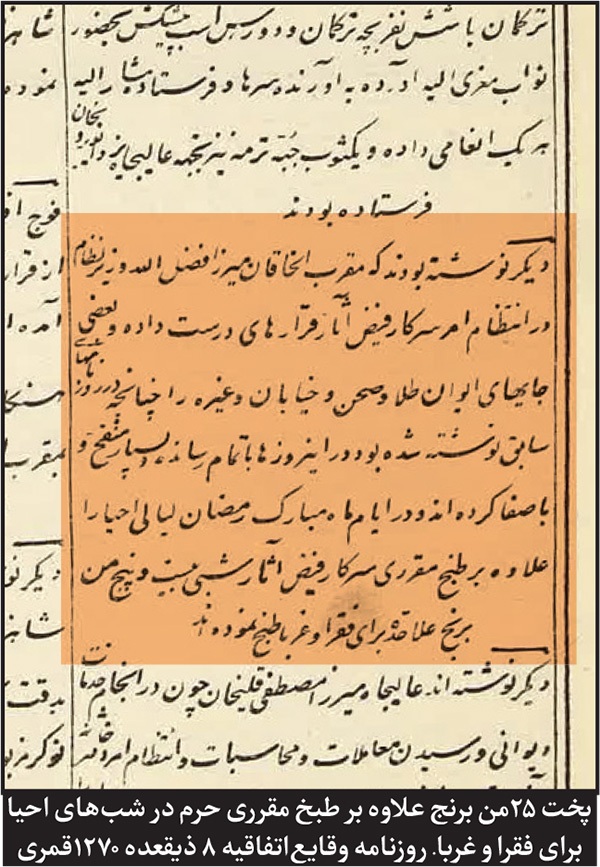 ترکمان با شش نفر بچه ترکمان و دو رس اسب پیشکش بحضور
نواب معزی الیه آورده به آورنده سرها و فرستاده مشار الیه
هر یک انعامی داده و یکثوب جبّه ترمه نیز بجهة عالیجاه
فرستاده بودند
دیگر نوشته بودند که مقرب الخاقان میرزا فضل الله وزیر نظام
در انتظام امر سرکار فیض آثار قرارهای درست داده و بعضی
جایهای ایوان طلا و صحن و خیابان و غیره را چنانچه در روزنامهای
سابق نوشته شده بود در اینروزها باتمام رسانده بسیار منقح و
با صفا کرده اند و در ایام ماه مبارک رمضان لیالی احیا را
علاوه بر طبخ مقرری سرکار فیض آثار شبی بیست و پنج من
برنج علاحده برای فقرا و غربا طبخ نموده اند
دیگر نوشته اند عالیجاه میرزا مصطفی قلیخان چون در انجام خدمات
دیوانی و رسیدن معاملات و محاسبات و انتظام امر
شاهز
نموده
فوج
از قرار
آمده
بمقرب
دیگر نو
شاهز
بدقت
نوکر مزبو
پخت ۲۵من برنج علاوه بر طبخ مقرری حرم در شب‌های احیا
برای فقرا و غربا. روزنامه وقایع‌اتفاقیه ۸ ذیقعده ۱۲۷۰قمری